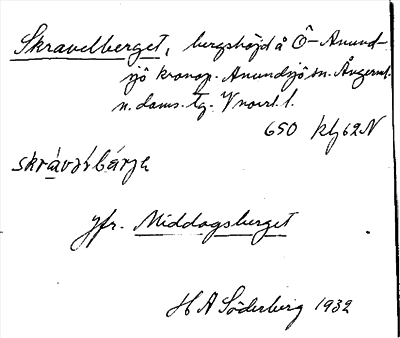 Skravelberget, bergshöjd å Ö-Anund-
sjö kronop. Anundsjö sn. Ångerml.
n. doms. tg. V norrl. l.
650 klj 62 N
skrávəlbárjə
Jfr. Middagsberget
H A Söderberg 1932